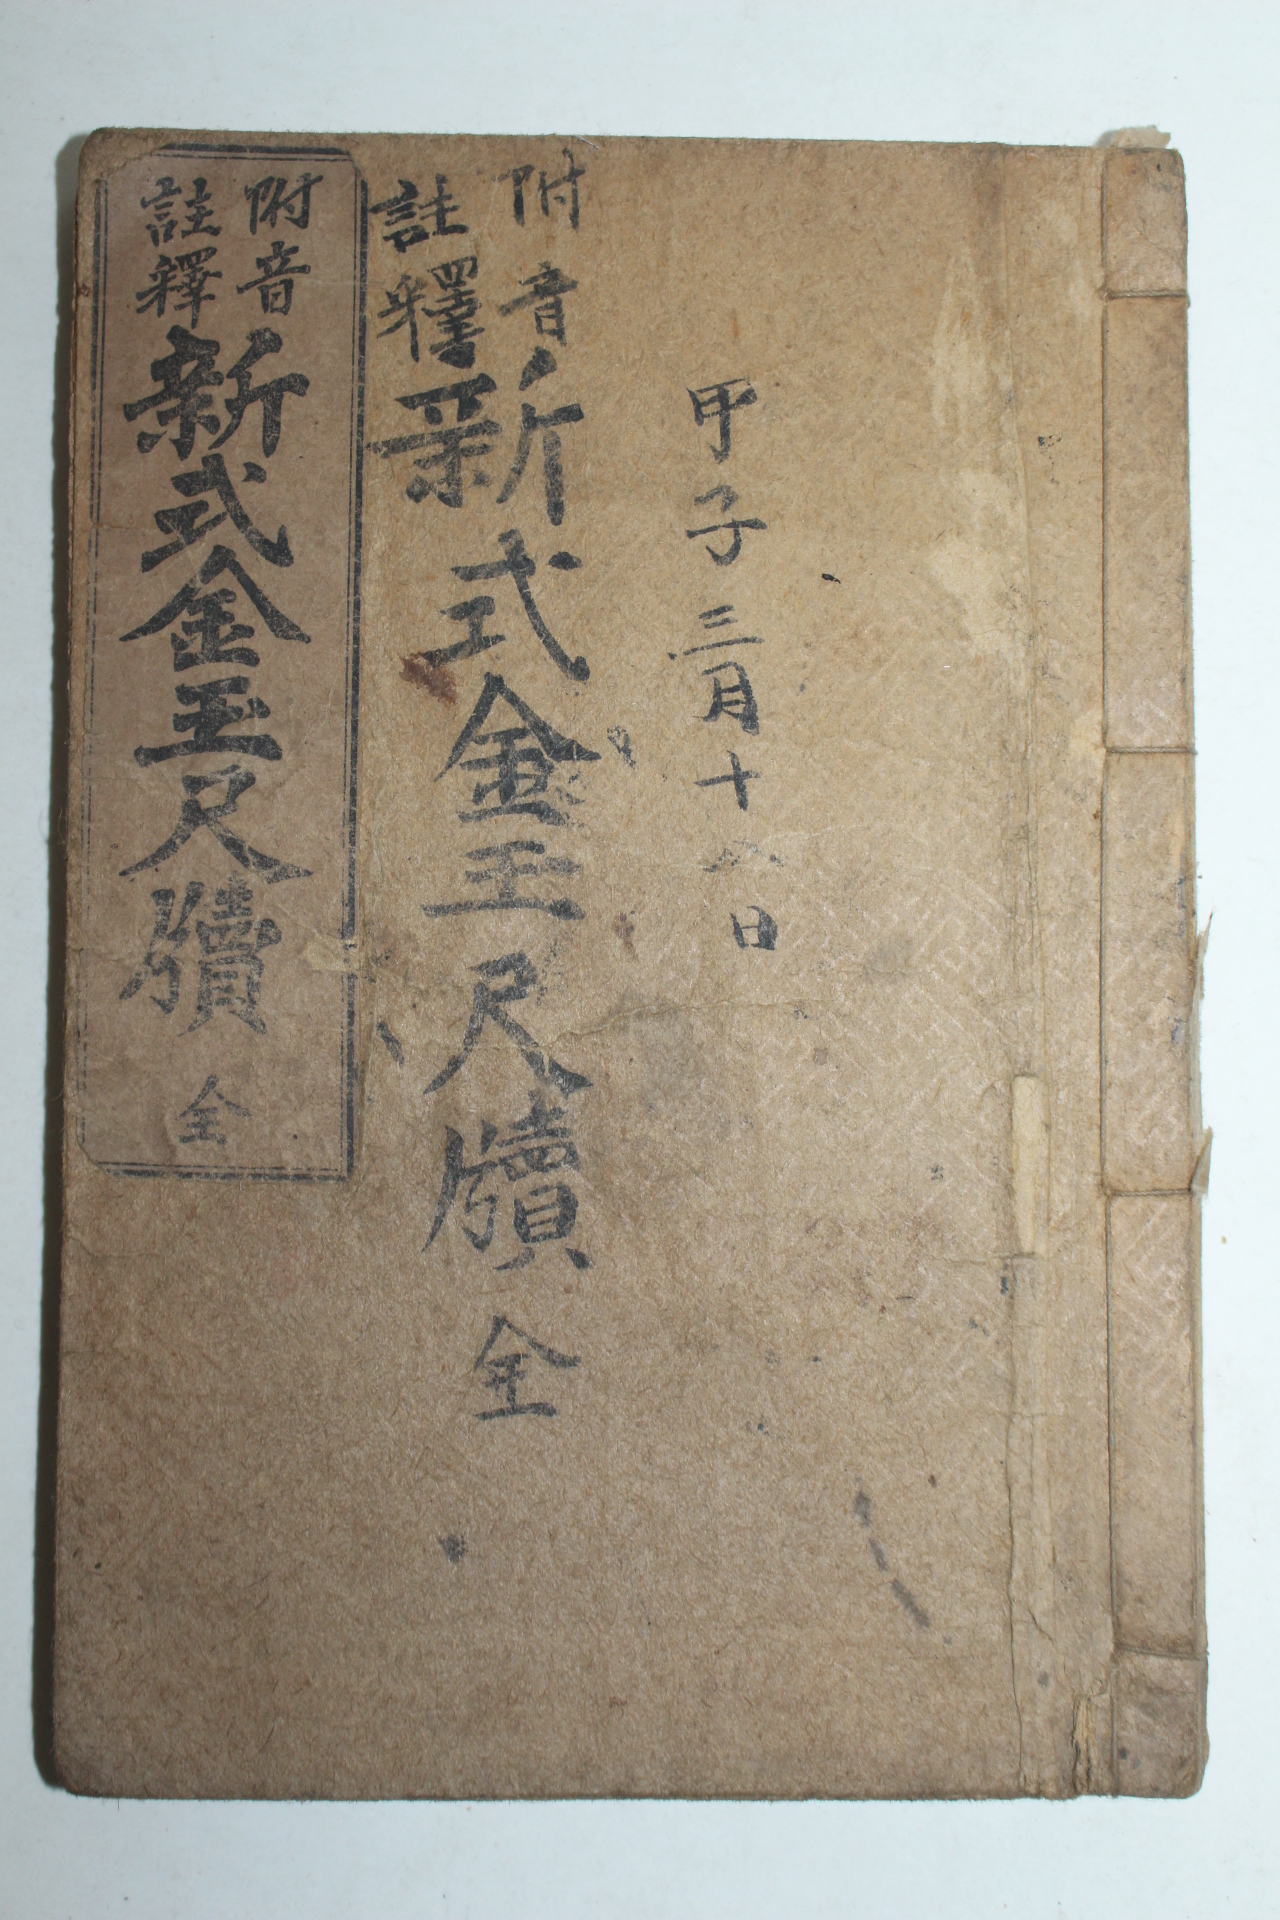 甲子三月十八日
附音
註釋
新式金玉尺牘 全
附音
註釋
新式金玉尺牘 全